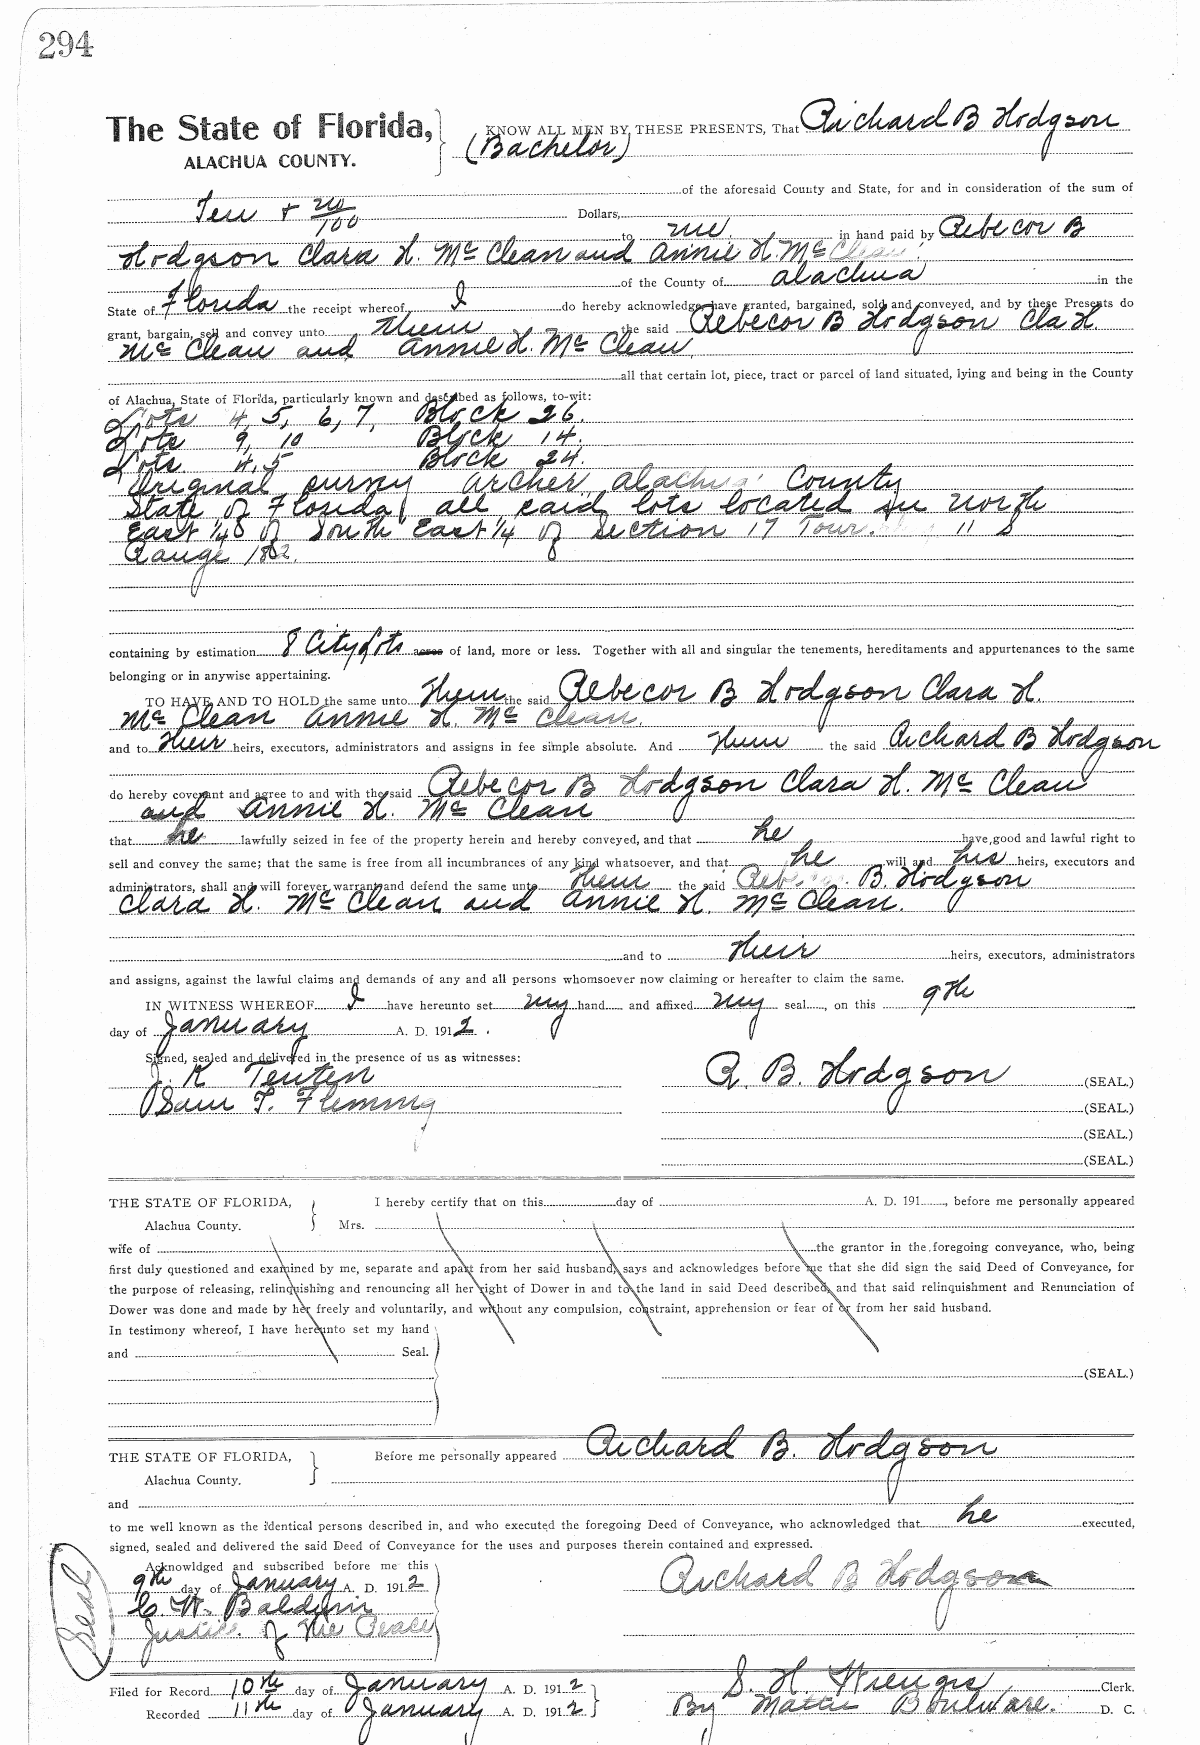 294
The State of Florida,
ALACHUA COUNTY.
KNOW ALL MEN BY THESE PRESENTS, That Richard B Hodgson
(Bachelor)
of the aforesaid County and State, for and in consideration of the sum of
Ten & no/100 Dollars,
to me in hand paid by Rebecor B
Hodgson Clara H. McClean and Annie H. McClean
of the County of Alachua in the
State of Florida the receipt whereof I do hereby acknowledge, have granted, bargained, sold and conveyed, and by these Presents do
grant, bargain, sell and convey unto them the said Rebecor B Hodgson Cla H.
McClean and Annie H. McClean
all that certain lot, piece, tract or parcel of land situated, lying and being in the County
of Alachua, State of Florida, particularly known and described as follows, to-wit:
Lots 4, 5, 6, 7, Block 26.
Lots 9, 10 Block 14.
Lots 4, 5 Block 24.
Original survey Archer Alachua County
State of Florida all said lots located in North
East 1/4 of South East 1/4 of Section 17 11 S
Range
containing by estimation 8 City lots acres of land, more or less. Together with all and singular the tenements, hereditaments and appurtenances to the same
belonging or in anywise appertaining.
TO HAVE AND TO HOLD the same unto Them the said Rebecor B Hodgson Clara H.
McClean Annie H. McClean.
and to their heirs, executors, administrators and assigns in fee simple absolute. And them the said Richard B Hodgson
do hereby covenant and agree to and with the said Rebecor B Hodgson Clara H. McClean
and Annie H. McClean
that he lawfully seized in fee of the property herein and hereby conveyed, and that he have good and lawful right to
sell and convey the same; that the same is free from all incumbrances of any kind whatsoever, and that he will and his heirs, executors and
administrators, shall and will forever warrant and defend the same unto them the said B. Hodgson
Clara H. McClean and Annie H. McClean.
and to their heirs, executors, administrators
and assigns, against the lawful claims and demands of any and all persons whomsoever now claiming or hereafter to claim the same.
IN WITNESS WHEREOF I have hereunto set my hand and affixed my seal, on this 9th
day of January A. D. 1912.
Signed, sealed and delivered in the presence of us as witnesses:
J. K Teuten R. B. Hodgson (SEAL.)
Sam T. Fleming (SEAL.)
(SEAL.)
(SEAL.)
THE STATE OF FLORIDA, I hereby certify that on this day of A. D. 191 , before me personally appeared
Alachua County. Mrs.
wife of the grantor in the foregoing conveyance, who, being
first duly questioned and examined by me, separate and apart from her said husband, says and acknowledges before me that she did sign the said Deed of Conveyance, for
the purpose of releasing, relinquishing and renouncing all her right of Dower in and to the land in said Deed described, and that said relinquishment and Renunciation of
Dower was done and made by her freely and voluntarily, and without any compulsion, constraint, apprehension or fear of or from her said husband.
In testimony whereof, I have hereunto set my hand
and Seal.
(SEAL.)
THE STATE OF FLORIDA, Before me personally appeared Richard B. Hodgson
Alachua County.
and
to me well known as the identical persons described in, and who executed the foregoing Deed of Conveyance, who acknowledged that he executed,
signed, sealed and delivered the said Deed of Conveyance for the uses and purposes therein contained and expressed.
Acknowldged and subscribed before me this
9th day of January A. D. 1912 Richard B Hodgson
C. W. Baldwin
Justice of the Peace
Seal
Filed for Record 10th day of January A. D. 1912 S. H. Wienges Clerk.
Recorded 11th day of January A. D. 1912 By Mattie Boulware. D. C.